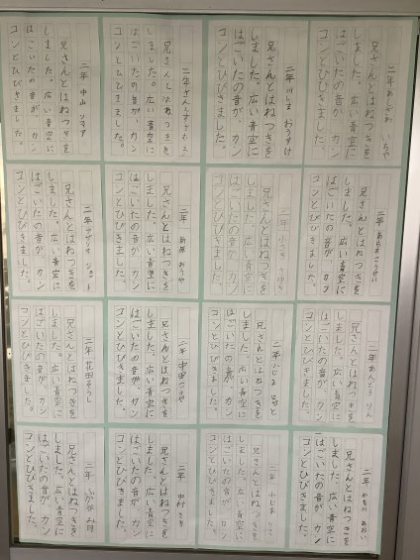 二年
兄さんとはねつきを
しました。広い青空に
はごいたの音が、カン
コンとひびきました。
二年 川しま おうすけ
兄さんとはねつきを
しました。広い青空に
はごいたの音が、カン
コンとひびきました。
二年
兄さんとはねつきを
しました。広い青空に
はごいたの音が、カン
コンとひびきました。
二年 中山
兄さんとはねつきを
しました。広い青空に
はごいたの音が、カン
コンとひびきました。
二年
兄さんとはねつきを
しました。広い青空に
はごいたの音が、カン
コンとひびきました。
兄さんとはねつきを
しました。広い青空に
はごいたの音が、カン
コンとひびきました。
二年
兄さんとはねつきを
しました。広い青空に
はごいたの音が、カン
コンとひびきました。
二年
兄さんとはねつきを
しました。広い青空に
はごいたの音が、カン
コンとひびきました。
二年 あんどう りん
兄さんとはねつきを
しました。広い青空に
はごいたの音が、カン
コンとひびきました。
二年
兄さんとはねつきを
しました。広い青空に
はごいたの音が、カン
コンとひびきました。
二年
兄さんとはねつきを
しました。広い青空に
はごいたの音が、カン
コンとひびきました。
二年 花田そうし
兄さんとはねつきを
しました。広い青空に
はごいたの音が、カン
コンとひびきました。
二年 あおい
兄さんとはねつきを
しました。広い青空に
はごいたの音が、カン
コンとひびきました。
二年
兄さんとはねつきを
しました。広い青空に
はごいたの音が、カン
コンとひびきました。
二年 中村
兄さんとはねつきを
しました。広い青空に
はごいたの音が、カン
コンとひびきました。
二年
兄さんとはねつきを
しました。広い青空に
はごいたの音が、カン
コンとひびきました。